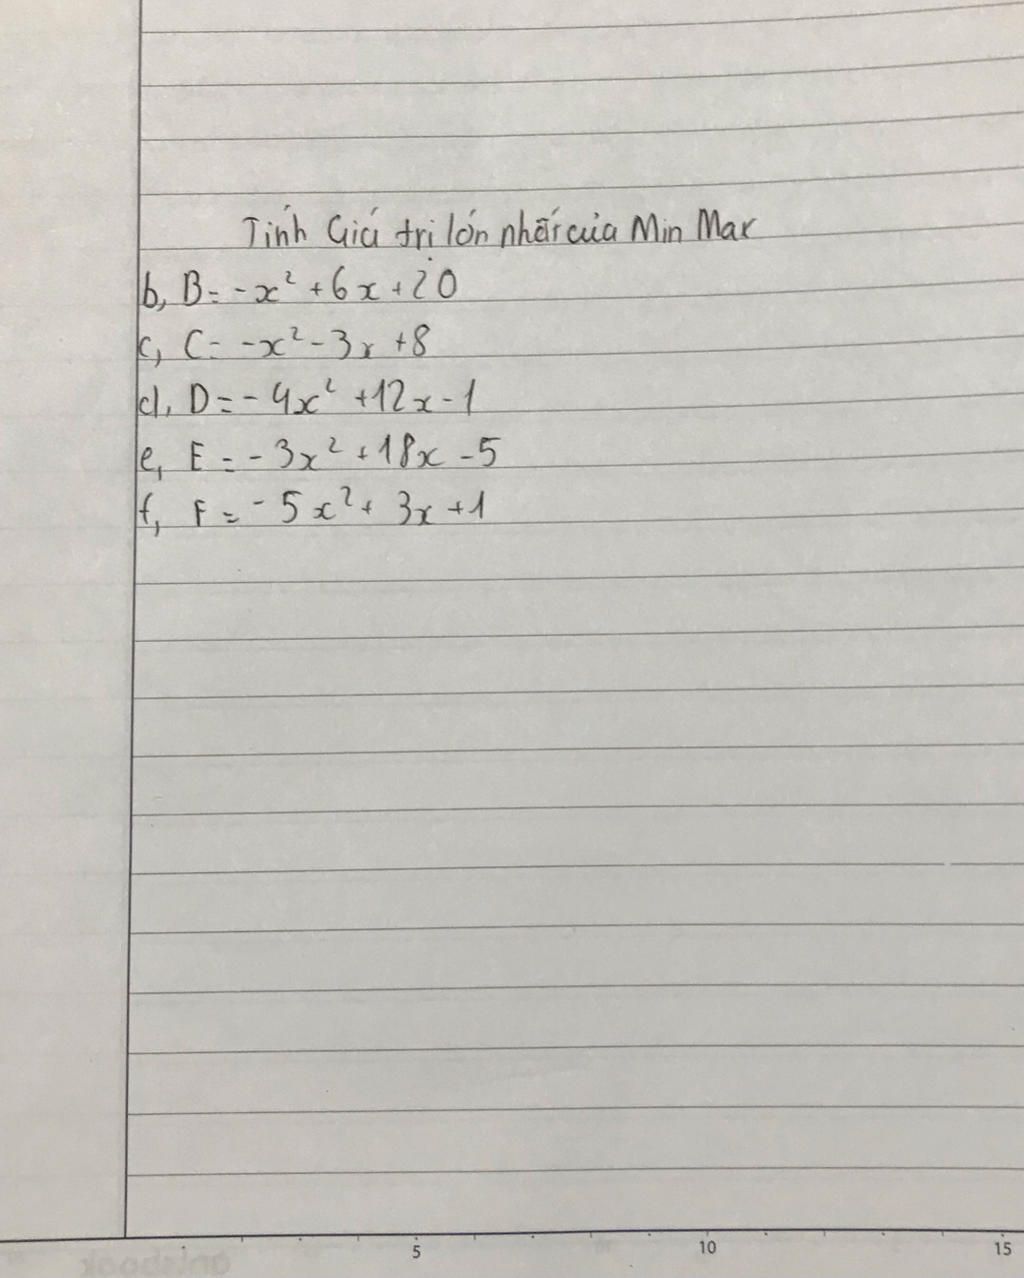 Tính Giá trị lớn nhất của Min Max
b, B = -x² + 6x + 20
c, C = -x² - 3x + 8
d, D = - 4x² + 12x - 1
e, E = - 3x² + 18x - 5
f, F = - 5x² + 3x + 1
5 10 15